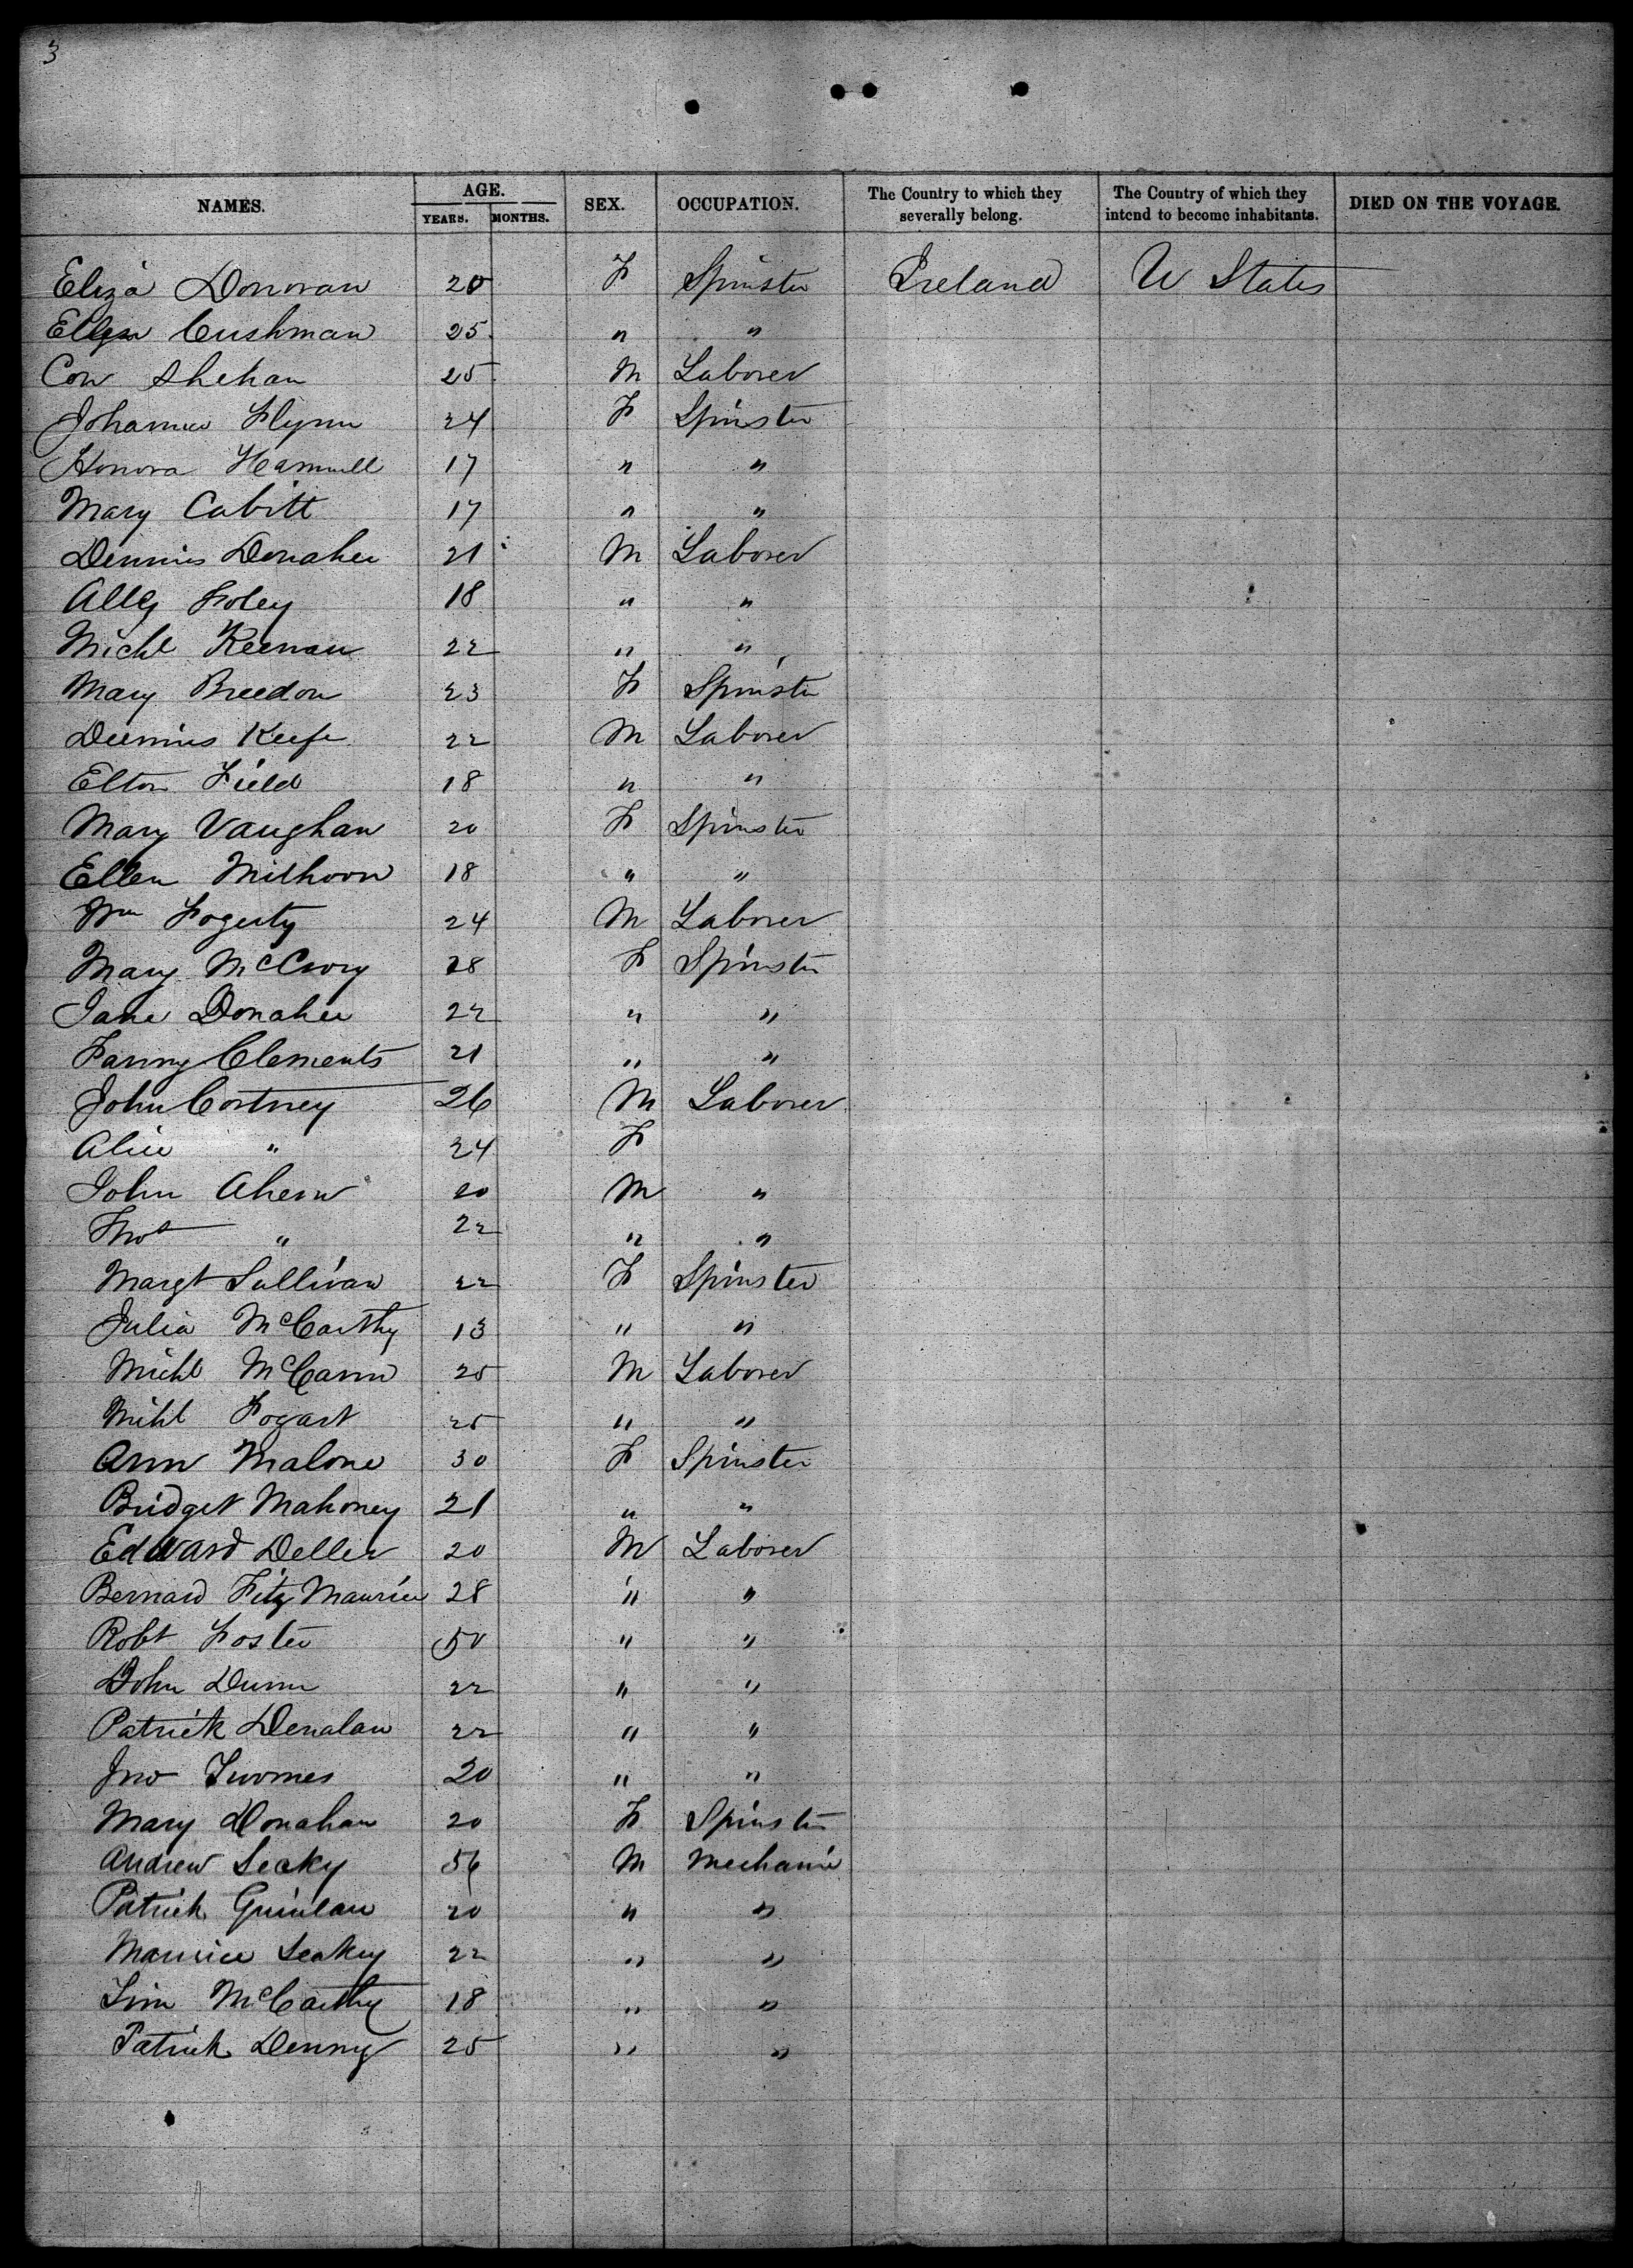 3
NAMES. AGE. YEARS. MONTHS. SEX. OCCUPATION. The Country to which they severally belong. The Country of which they intend to become inhabitants. DIED ON THE VOYAGE.
Eliza Donovan 20 F Spinster Ireland U States
Ellen Cushman 25 " "
Con Shehan 25 M Laborer
Johanna Flynn 24 F Spinster
Honora Hammill 17 " "
Mary Cabitt 17 " "
Dennis Donahee 21 M Laborer
Ally Foley 18 " "
Michl Keenan 22 " "
Mary Breedon 23 F Spinster
Dennis Keefe 22 M Laborer
Elton Field 18 " "
Mary Vaughan 20 F Spinster
Ellen Milhoon 18 " "
Wm Fogerty 24 M Laborer
Mary McCrory 28 F Spinster
Jane Donahee 22 " "
Fanny Clements 21 " "
John Cortney 26 M Laborer
Alice " 24 F
John Ahern 20 M "
Thos " 22 " "
Margt Sullivan 22 F Spinster
Julia McCarthy 13 " "
Michl McCann 25 M Laborer
Mihl Fogart 25 " "
Ann Malone 30 F Spinster
Bridget Mahoney 21 " "
Edward Deller 20 M Laborer
Bernard Fitz Maurice 28 " "
Robt Foster 50 " "
John Dunn 22 " "
Patrick Denalan 22 " "
Jno Twomes 20 " "
Mary Donahan 20 F Spinster
Andrew Leaky 56 M Mechanic
Patrick Quinlan 20 " "
Maurice Leakey 22 " "
Tim McCarthy 18 " "
Patrick Denny 25 " "